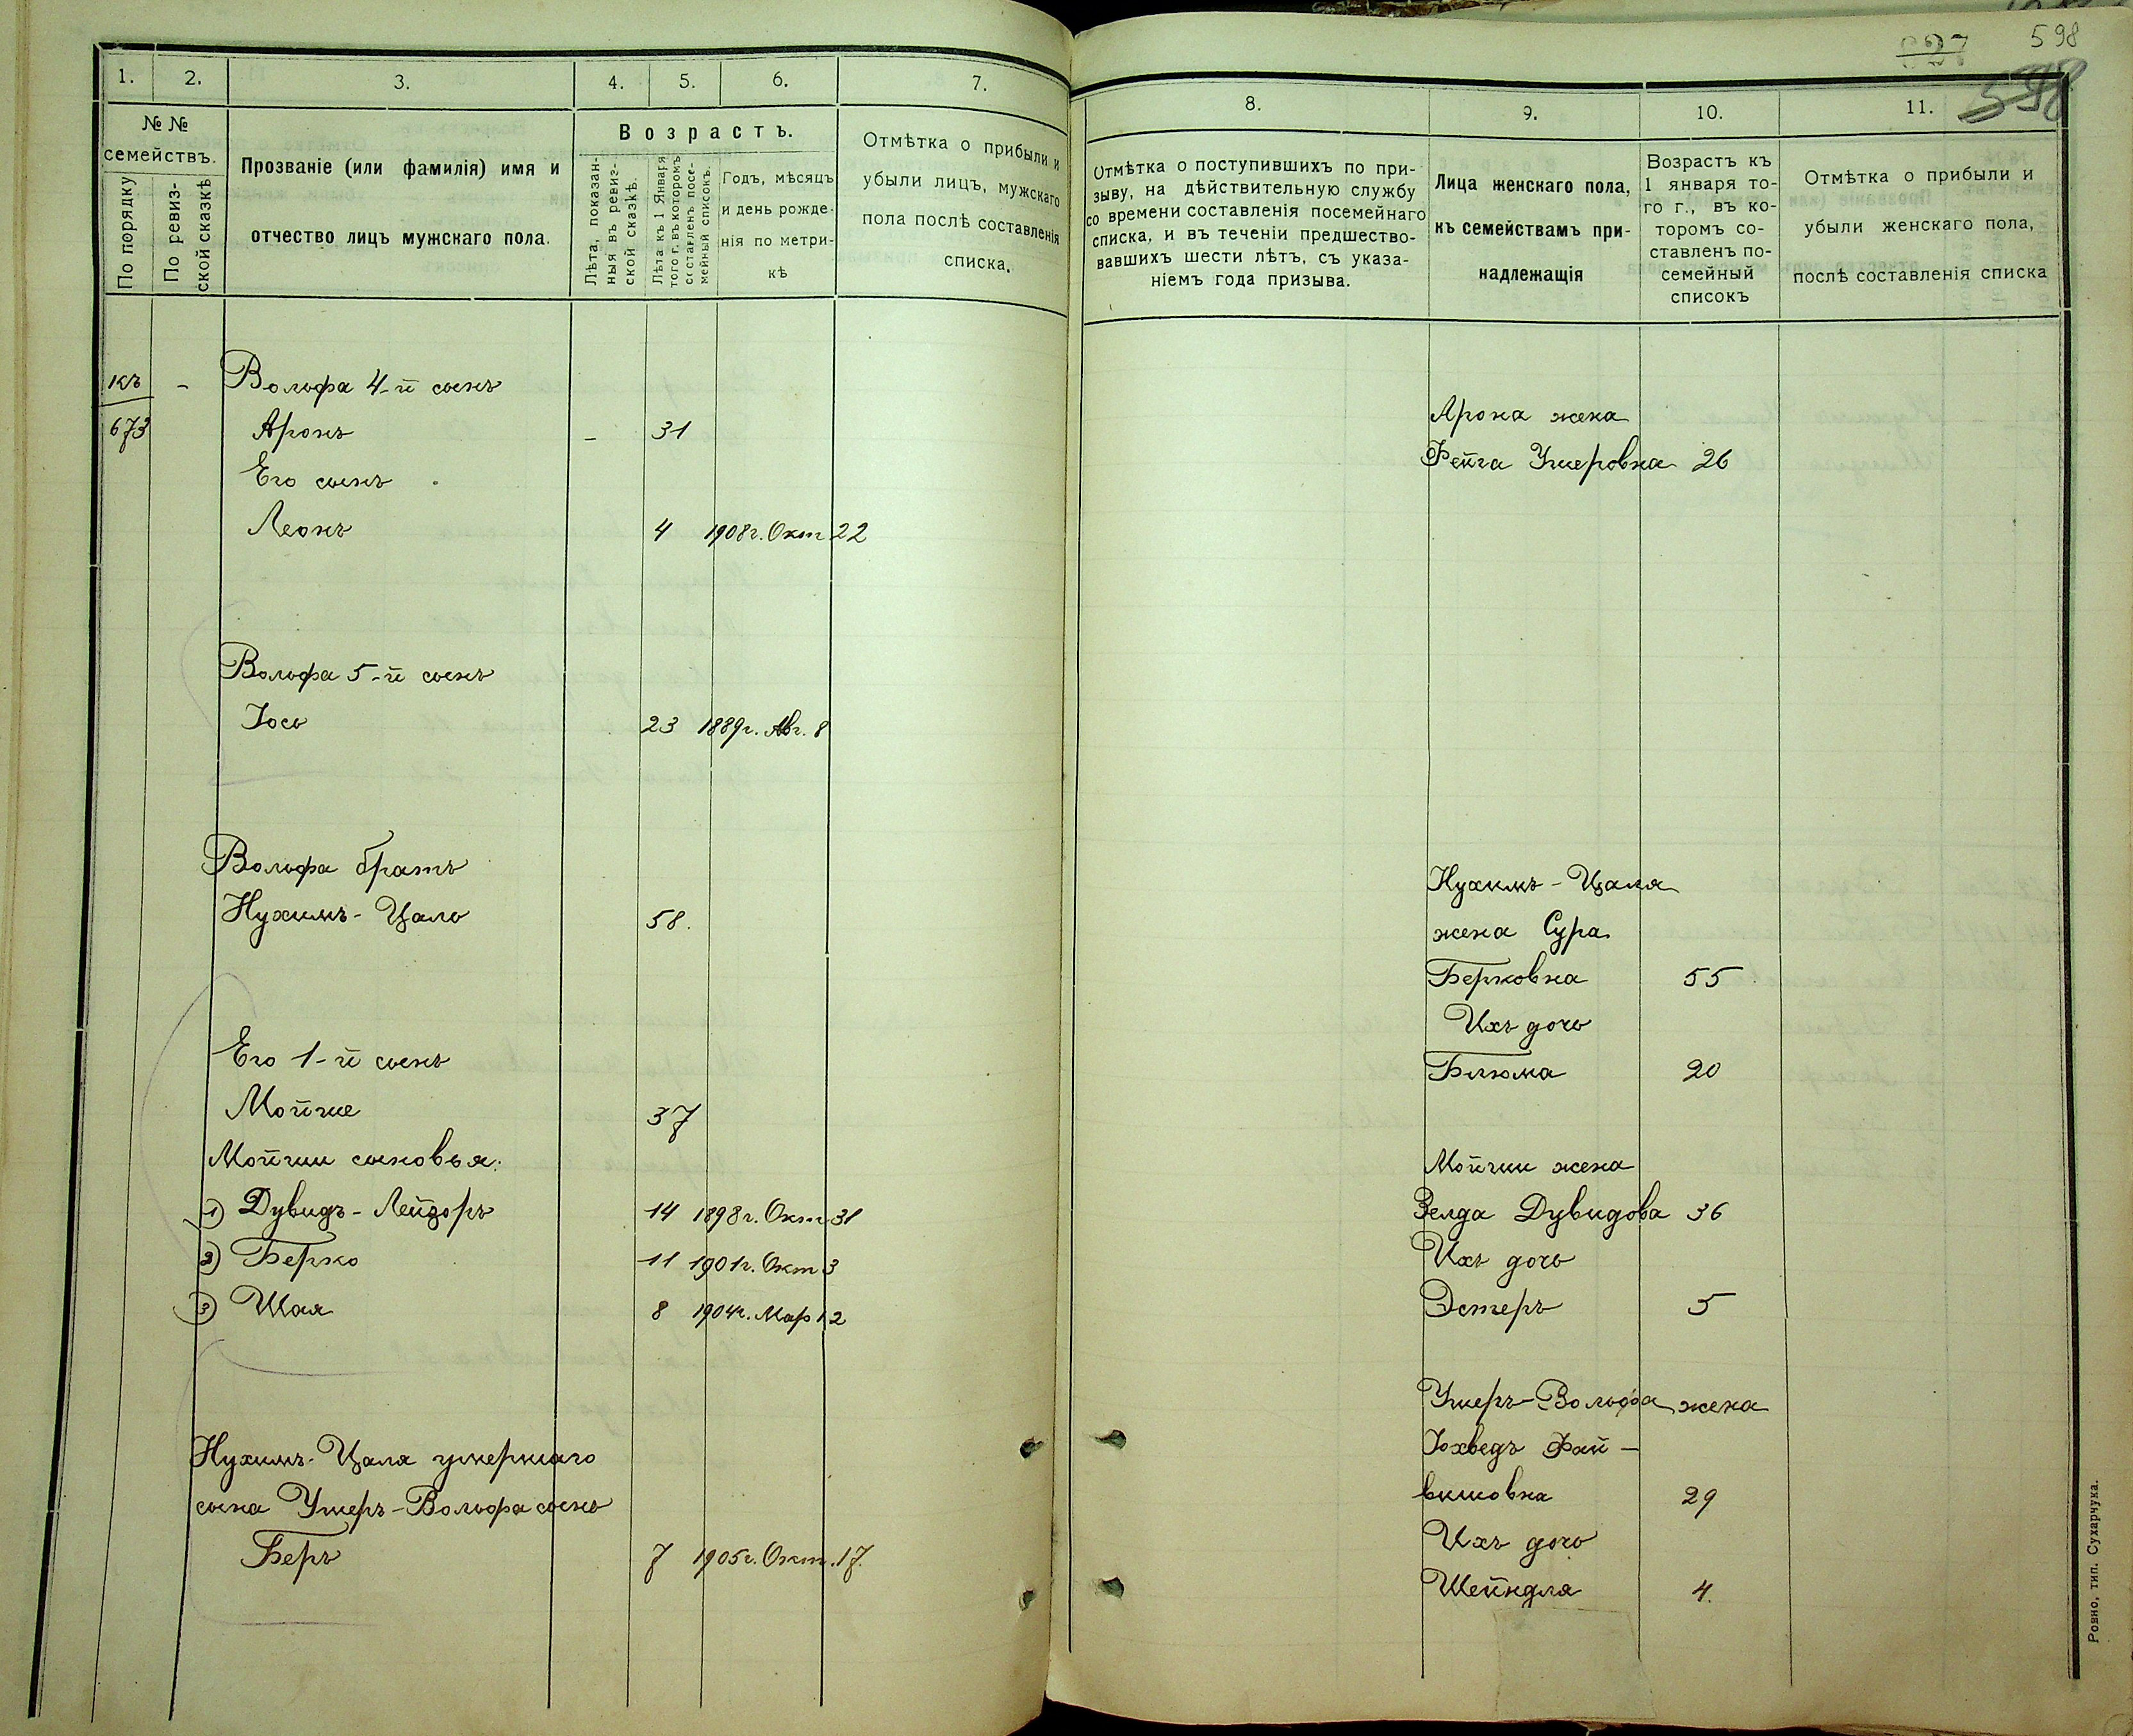 627
598
598
1. 2. 3. 4. 5. 6. 7.
№ №
семействъ.
По порядку
По ревиз-
ской сказкѣ
Прозваніе (или фамилія) имя и
отчество лицъ мужскаго пола.
Возрастъ.
Лѣта, показан-
ныя въ ревиз-
ской сказкѣ.
Лѣта къ 1 Января
того г. въ которомъ
составленъ посе-
мейный списокъ.
Годъ, мѣсяцъ
и день рожде-
нія по метри-
кѣ
Отмѣтка о прибыли и
убыли лицъ, мужскаго
пола послѣ составленія
списка.
къ - Вольфа 4-й сынъ
673 Аронъ - 31
Его сынъ
Леонъ 4 1908г. Окт 22
Вольфа 5-й сынъ
Іось 23 1889г. Авг. 8
Вольфа братъ
Нухимъ-Цаль 58.
Его 1-й сынъ
Мойше 37
Мойши сыновья:
1) Дувидъ-Лейзоръ 14 1898г. Окт 31
2) Берко 11 1901г. Окт 3
3) Шая 8 1904г. Мар 12
Нухимъ-Цаля умершаго
сына Ушеръ-Вольфа сынъ
Беръ 7 1905г. Окт. 17.
8. 9. 10. 11.
Отмѣтка о поступившихъ по при-
зыву, на дѣйствительную службу
со времени составленія посемейнаго
списка, и въ теченіи предшество-
вавшихъ шести лѣтъ, съ указа-
ніемъ года призыва.
Лица женскаго пола,
къ семействамъ при-
надлежащія
Возрастъ къ
1 января то-
го г., въ ко-
торомъ со-
ставленъ по-
семейный
списокъ
Отмѣтка о прибыли и
убыли женскаго пола,
послѣ составленія списка
Арона жена
Фейга Ушеровна 26
Нухимъ-Цаля
жена Сура
Берковна 55
Ихъ дочь
Блюма 20
Мойши жена
Зелда Дувидова 36
Ихъ дочь
Эстеръ 5
Ушеръ-Вольфа жена
Іохведъ Фай-
вишовна 29
Ихъ дочь
Шейндля 4.
Ровно, тип. Сухарчука.